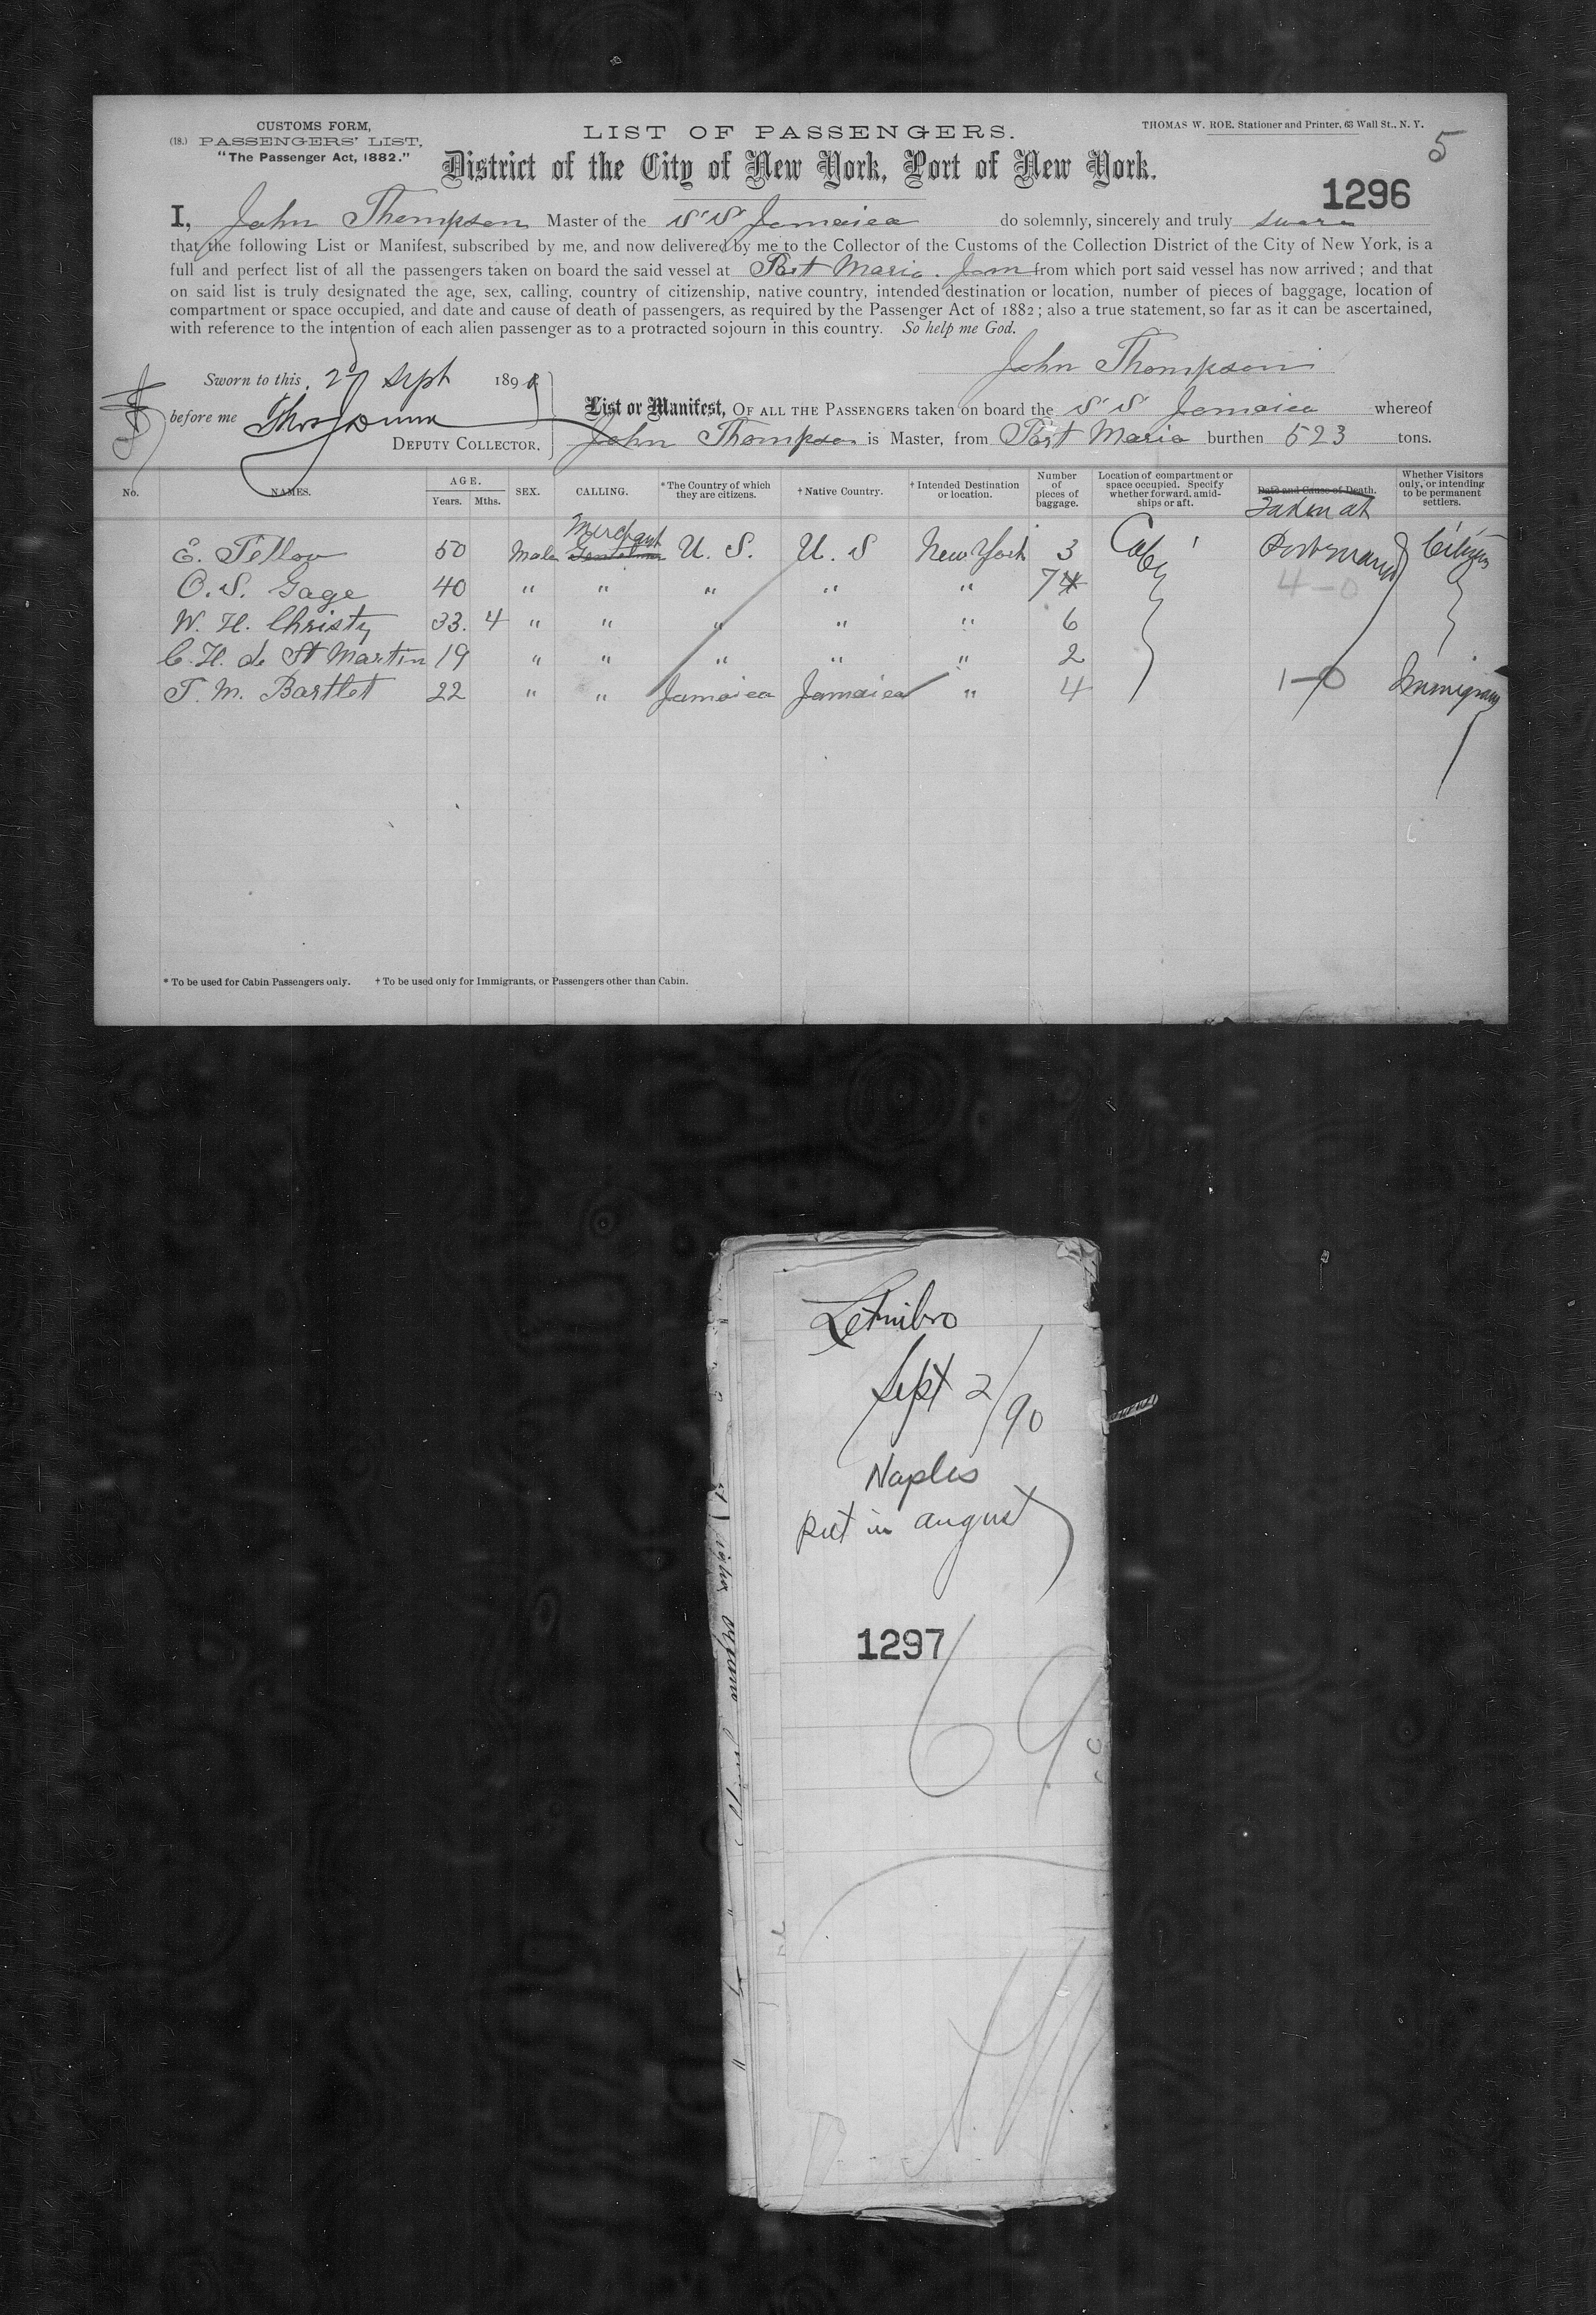 CUSTOMS FORM,
(18.) PASSENGERS' LIST,
"The Passenger Act, 1882."
LIST OF PASSENGERS.
THOMAS W. ROE. Stationer and Printer, 63 Wall St., N. Y.
5
District of the City of New York, Port of New York.
1296
I, John Thompson Master of the SS Jamaica do solemnly, sincerely and truly swear
that the following List or Manifest, subscribed by me, and now delivered by me to the Collector of the Customs of the Collection District of the City of New York, is a
full and perfect list of all the passengers taken on board the said vessel at Port Maria. Jam from which port said vessel has now arrived; and that
on said list is truly designated the age, sex, calling, country of citizenship, native country, intended destination or location, number of pieces of baggage, location of
compartment or space occupied, and date and cause of death of passengers, as required by the Passenger Act of 1882; also a true statement, so far as it can be ascertained,
with reference to the intention of each alien passenger as to a protracted sojourn in this country. So help me God.
John Thompson
Sworn to this 27 Sept 1890
before me Thos Dunn
DEPUTY COLLECTOR.
List or Manifest, OF ALL THE PASSENGERS taken on board the SS Jamaica whereof
John Thompson is Master, from Port Maria burthen 523 tons.
No. NAMES. AGE. Years. Mths. SEX. CALLING. *The Country of which they are citizens. †Native Country. †Intended Destination or location. Number of pieces of baggage. Location of compartment or space occupied. Specify whether forward, amidships or aft. Date and Cause of Death. Taken at Whether Visitors only, or intending to be permanent settlers.
E. Tellow 50 Male Merchant Gentleman U. S. U. S New York 3 Port Maria Citizens
O. S. Gage 40 " " " " " 7 4 4-0
W. H. Christy 33. 4 " " " " " 6
C. H. de St Martin 19 " " " " " 2
T. M. Bartlet 22 " " Jamaica Jamaica " 4 1-0 Immigrant
* To be used for Cabin Passengers only. † To be used only for Immigrants, or Passengers other than Cabin.
Letimbro
Sept 2/90
Naples
put in august
1297
69